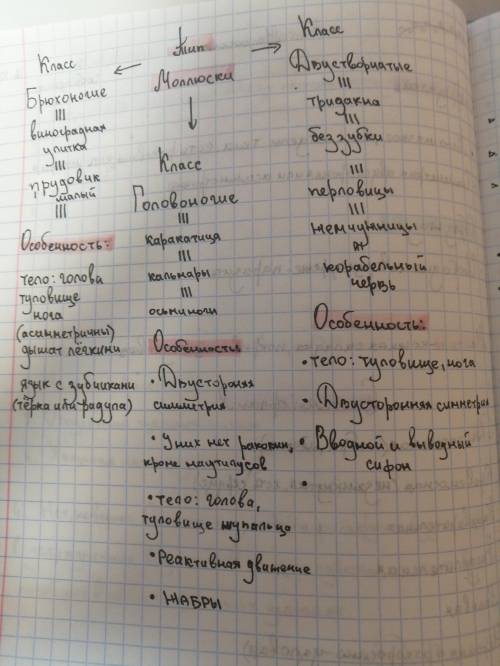 Тип
Моллюски
Класс
Брюхоногие
виноградная
улитка
прудовик
малый
Особенность:
тело: голова
туловище
нога
(асимметричны)
дышат лёгкими
язык с зубчиками
(тёрка или радула)
Класс
Головоногие
каракатица
кальмары
осьминоги
Особенность
• Двусторонняя
симметрия
• У них нет раковин,
кроме наутилусов
• тело: голова,
туловище щупальца
• Реактивная движение
• ЖАБРЫ
Класс
Двустворчатые
тридакна
беззубки
перловицы
жемчужницы
корабельный
червь
Особенность:
• тело: туловище, нога
• Двусторонняя симметрия
• Вводной и выводный
сифон
•